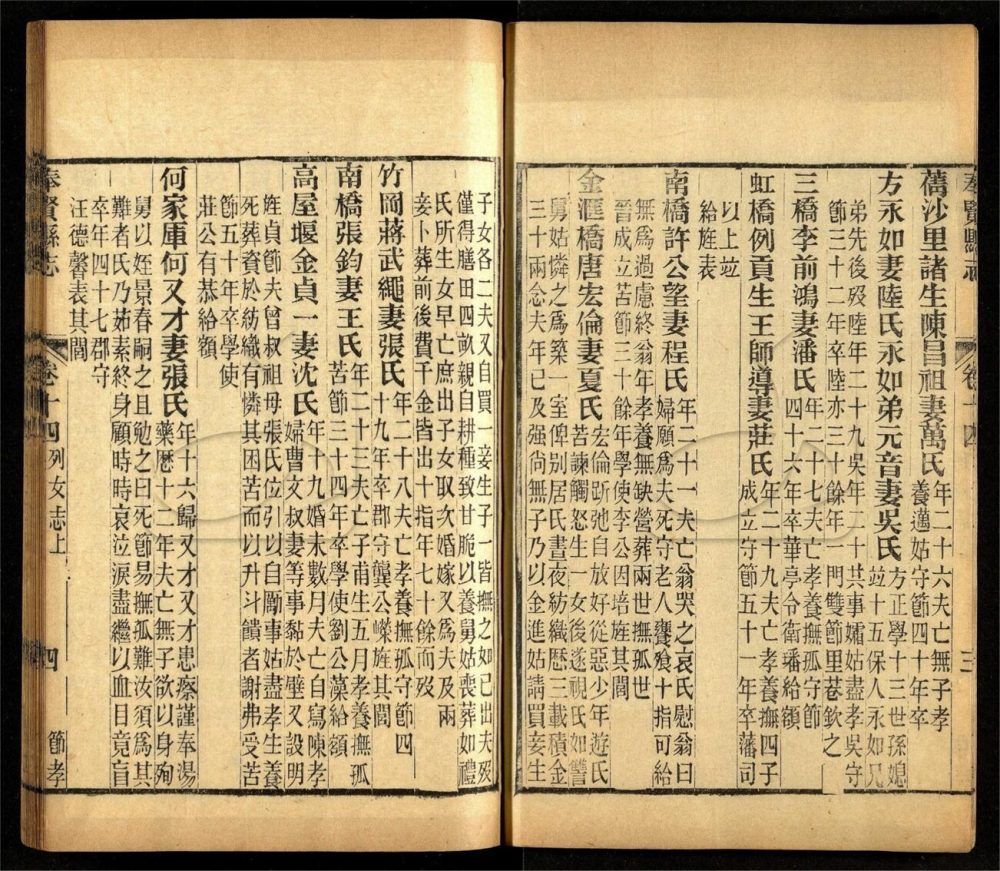 奉賢縣志 卷十四 三
舊沙里諸生陳昌祖妻萬氏 年二十六夫亡無子孝
養邁姑守節四十年卒
方永如妻陸氏永如弟元音妻吳氏 方正學十三世孫媳
竝十五保人永如兄
弟先後歿陸年二十九吳年二十其事孀姑盡孝吳守
節三十二年卒陸亦三十餘年一門雙節里巷欽之
三橋李前鴻妻潘氏 年二十七夫亡孝養撫孤守節
四十六年卒華亭令衛璠給額
虹橋例貢生王師導妻莊氏 年二十九夫亡孝養撫四子
成立守節五十一年卒藩司
以上竝
給旌表
南橋許公望妻程氏 年二十一夫亡翁哭之哀氏慰翁曰
婦願爲夫死守老人饔飧十指可給
無爲過慮終翁年孝養無缺營葬兩世撫孤世
晉成立苦節三十餘年學使李公因培旌其閭
金滙橋唐宏倫妻夏氏 宏倫跅弛自放好從惡少年遊氏
苦諫觸怒生一女後遂視氏如讐
舅姑憐之爲築一室俾別居氏晝夜紡織歷三載積金
三十兩念夫年已及强尚無子乃以金進姑請買妾生
子女各二夫又自買一妾生子一皆撫之如己出夫歿
僅得膳田四畝親自耕種致甘脆以養舅姑喪葬如禮
氏所生女早亡庶出子女取次婚嫁又爲夫及兩
妾卜葬前後費千金皆出十指年七十餘而歿
竹岡蔣武繩妻張氏 年二十八夫亡孝養撫孤守節四
十九年卒郡守龔公嶸旌其閭
南橋張鈞妻王氏 年二十三夫亡子甫生五月孝養撫孤
苦節三十四年卒學使劉公藻給額
高屋堰金貞一妻沈氏 年十九婚未數月夫亡自寫陳孝
婦曹文叔妻等事黏於壁又設明
旌貞節夫曾叔祖母張氏位引以自勵事姑盡孝生養
死葬資於紡織有憐其困苦而以升斗饋者謝弗受苦
節五十年卒學使
莊公有恭給額
何家厙何又才妻張氏 年十六歸又才又才患瘵謹奉湯
藥歷十二年夫亡無子欲以身殉
舅以姪景春嗣之且勉之曰死節易撫孤難汝須爲其
難者氏乃茹素終身顧時時哀泣淚盡繼以血目竟盲
卒年四十七郡守
汪德馨表其閭
奉賢縣志 卷十四 列女志上 節孝 四